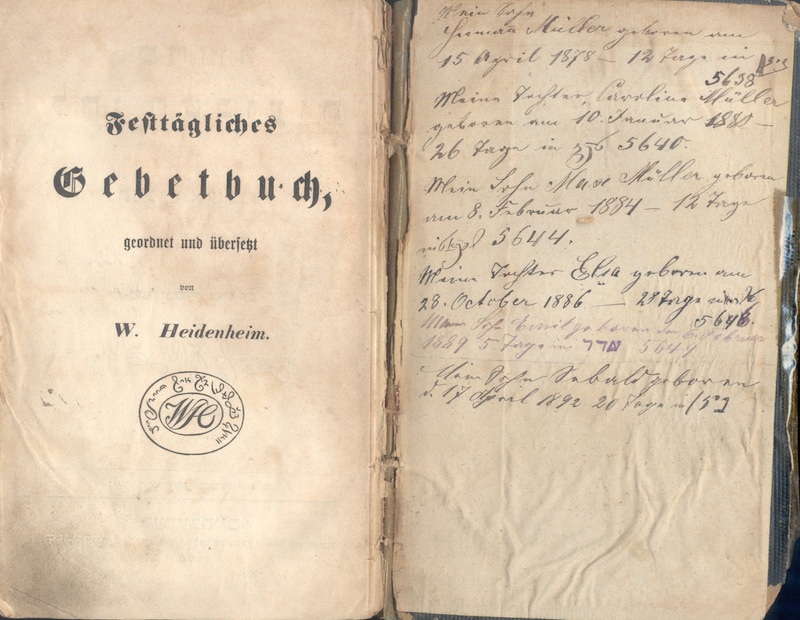 Festtägliches
Gebetbuch,
geordnet und übersetzt
von
W. Heidenheim.
WH
Mein Sohn
Hermann Müller geboren am
15 April 1878 — 12 Tage in
5638
Meine Tochter, Caroline Müller
geboren am 10. Januar 1880 —
26 Tage in 5640.
Mein Sohn Max Müller geboren
am 8. Februar 1884 — 12 Tage
in 5644.
Meine Tochter Elsa geboren am
28. October 1886 — 29 Tage in
Mein Sohn Emil geboren den 6 Februar
1889 5 Tage in אדר
Mein Sohn Sebald geboren
d. 17 April 1892 20 Tage in